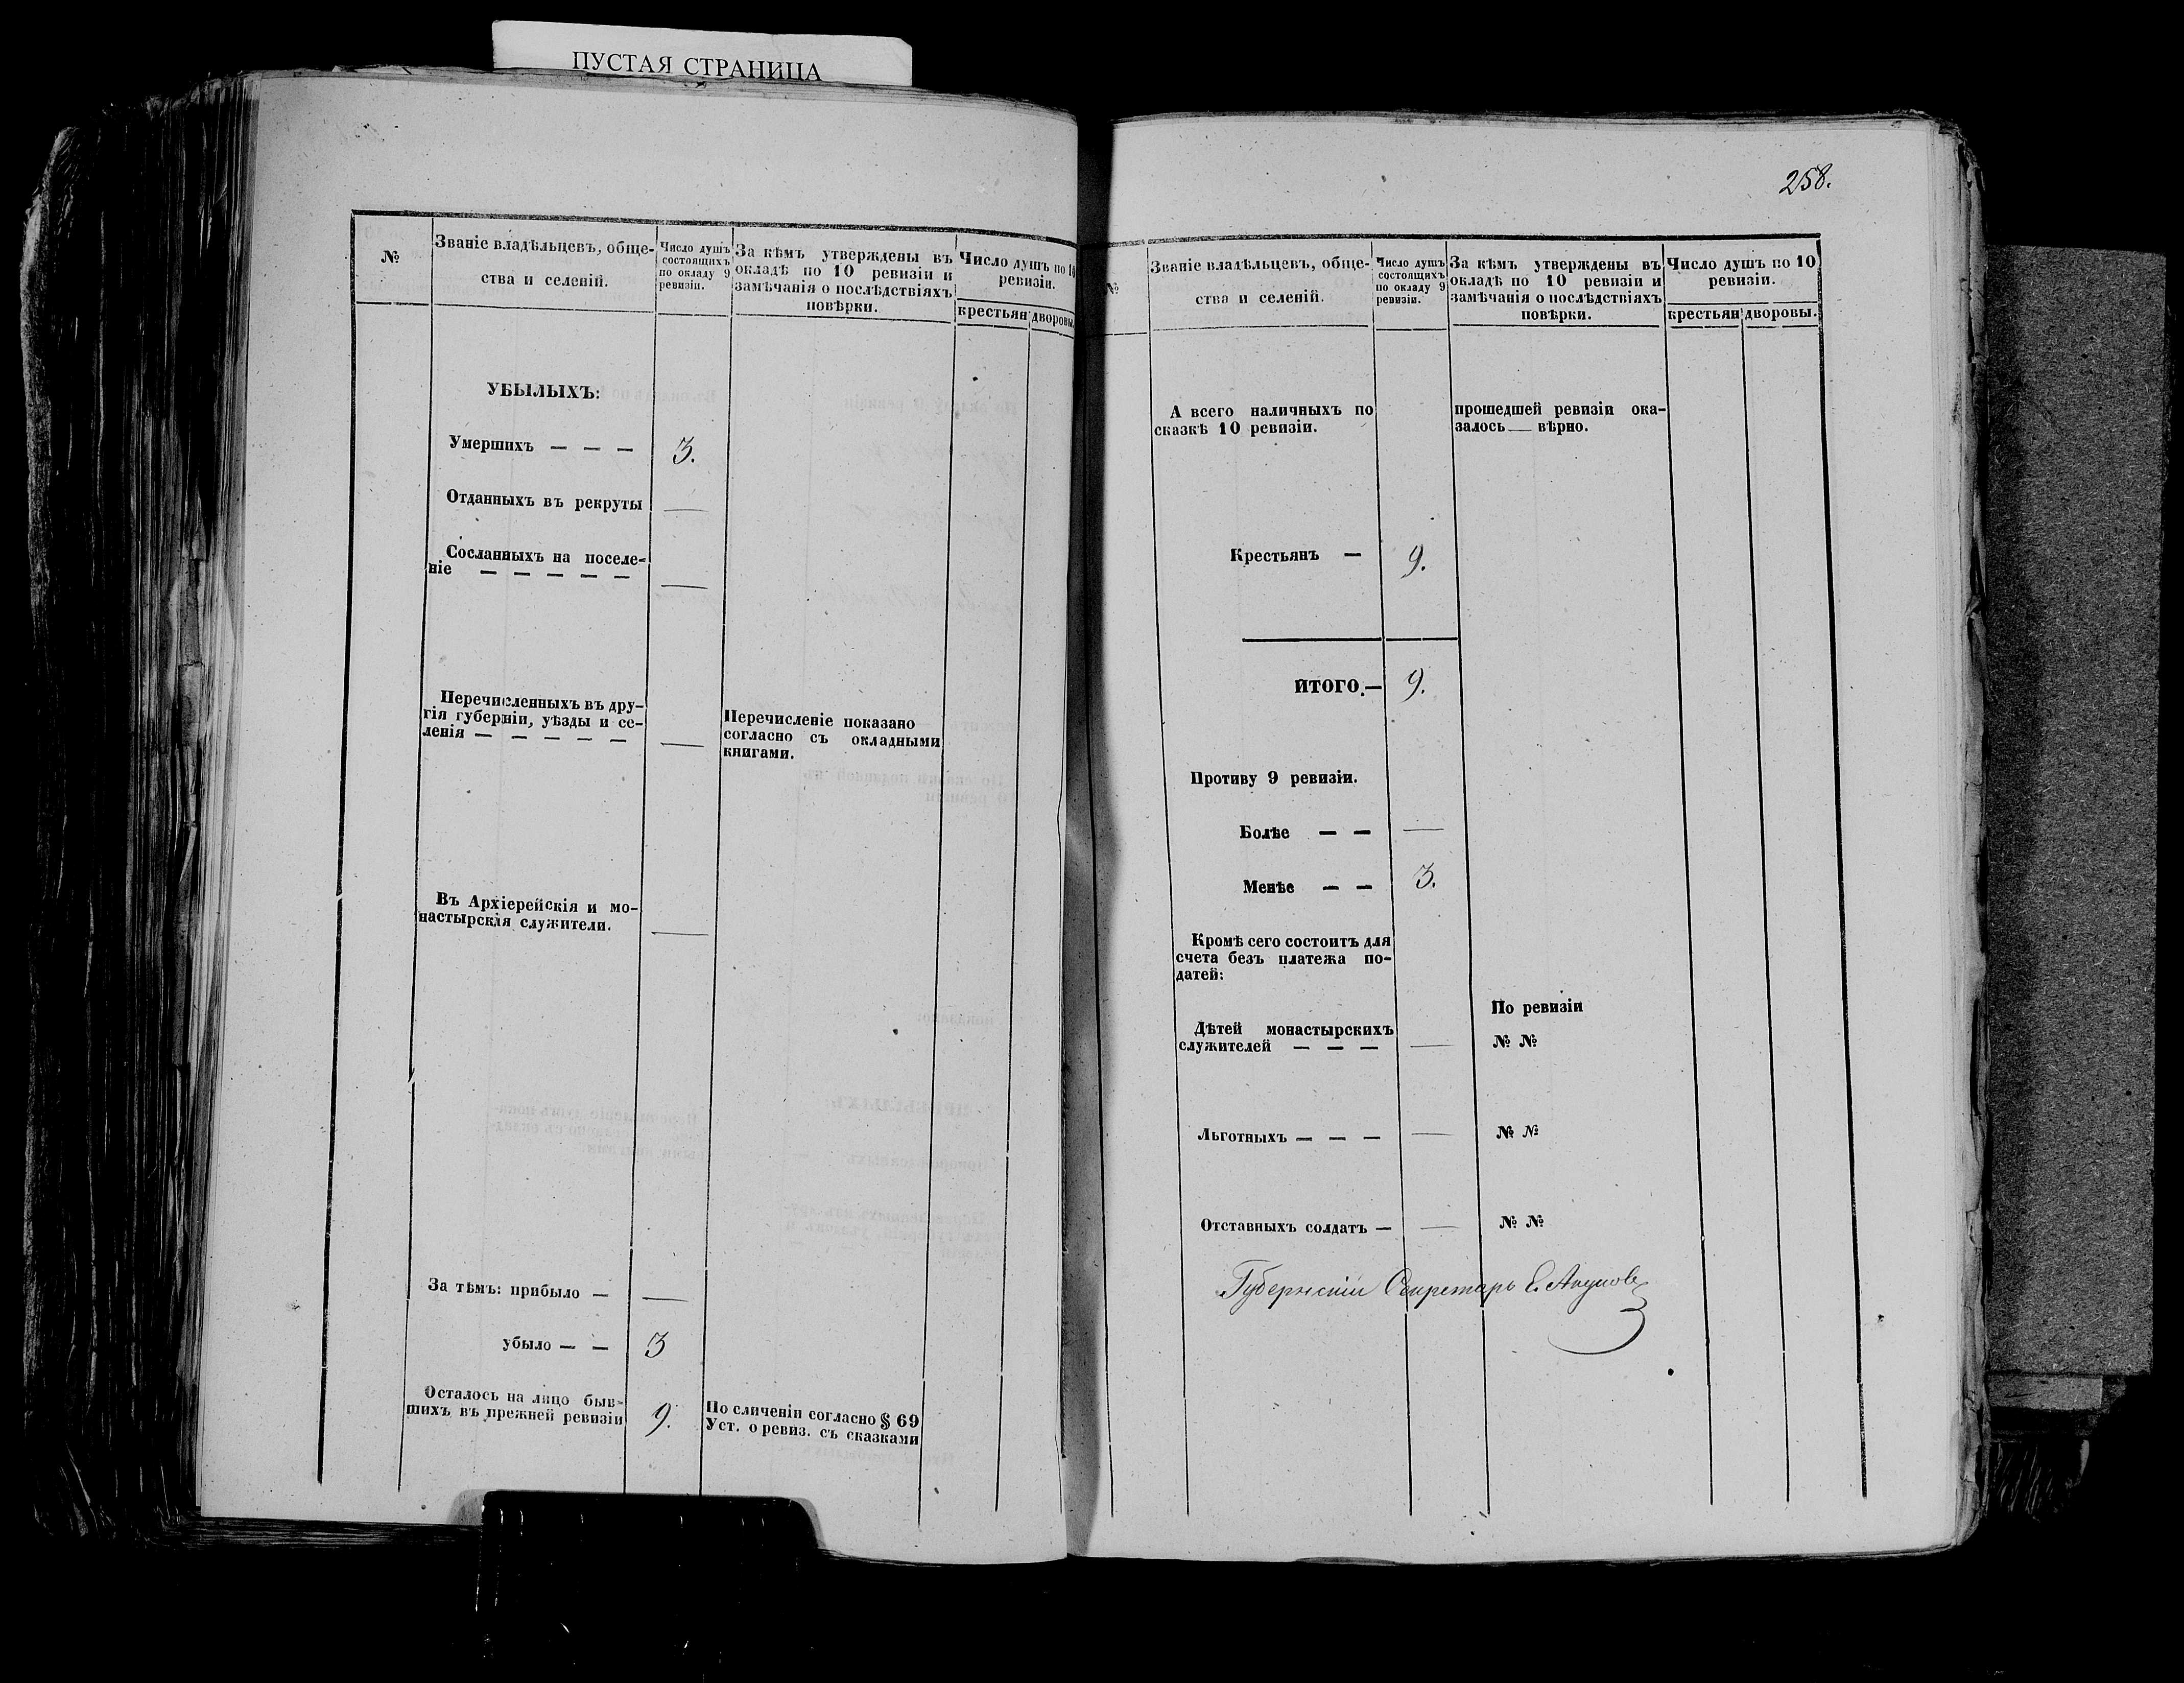 ПУСТАЯ СТРАНИЦА
№
Званіе владѣльцевъ, обще-
ства и селеній.
Число душъ
состоящихъ
по окладу 9
ревизіи.
За кѣмъ утверждены въ
окладѣ по 10 ревизіи и
замѣчанія о послѣдствіяхъ
повѣрки.
Число душъ по 10
ревизіи.
крестьян дворовы.
УБЫЛЫХЪ:
Умершихъ — — — 3.
Отданныхъ въ рекруты —
Сосланныхъ на поселе-
ніе — — — — — —
Перечисленныхъ въ дру-
гія губерніи, уѣзды и се-
ленія — — — — — —
Перечисленіе показано
согласно съ окладными
книгами.
Въ Архіерейскія и мо-
настырскія служители. —
За тѣмъ: прибыло — —
убыло — — 3
Осталось на лицо быв-
шихъ въ прежней ревизіи 9.
По сличеніи согласно § 69
Уст. о ревиз. съ сказками
258.
№
Званіе владѣльцевъ, обще-
ства и селеній.
Число душъ
состоящихъ
по окладу 9
ревизіи.
За кѣмъ утверждены въ
окладѣ по 10 ревизіи и
замѣчанія о послѣдствіяхъ
повѣрки.
Число душъ по 10
ревизіи.
крестьян дворовы.
А всего наличныхъ по
сказкѣ 10 ревизіи.
прошедшей ревизіи ока-
залось — вѣрно.
Крестьянъ — 9.
ИТОГО.— 9.
Противу 9 ревизіи.
Болѣе — — —
Менѣе — — 3.
Кромѣ сего состоитъ для
счета безъ платежа по-
датей:
По ревизіи
Дѣтей монастырскихъ
служителей — — — —
№ №
Льготныхъ — — — — № №
Отставныхъ солдатъ — — № №
Губернскій Секретарь Е.